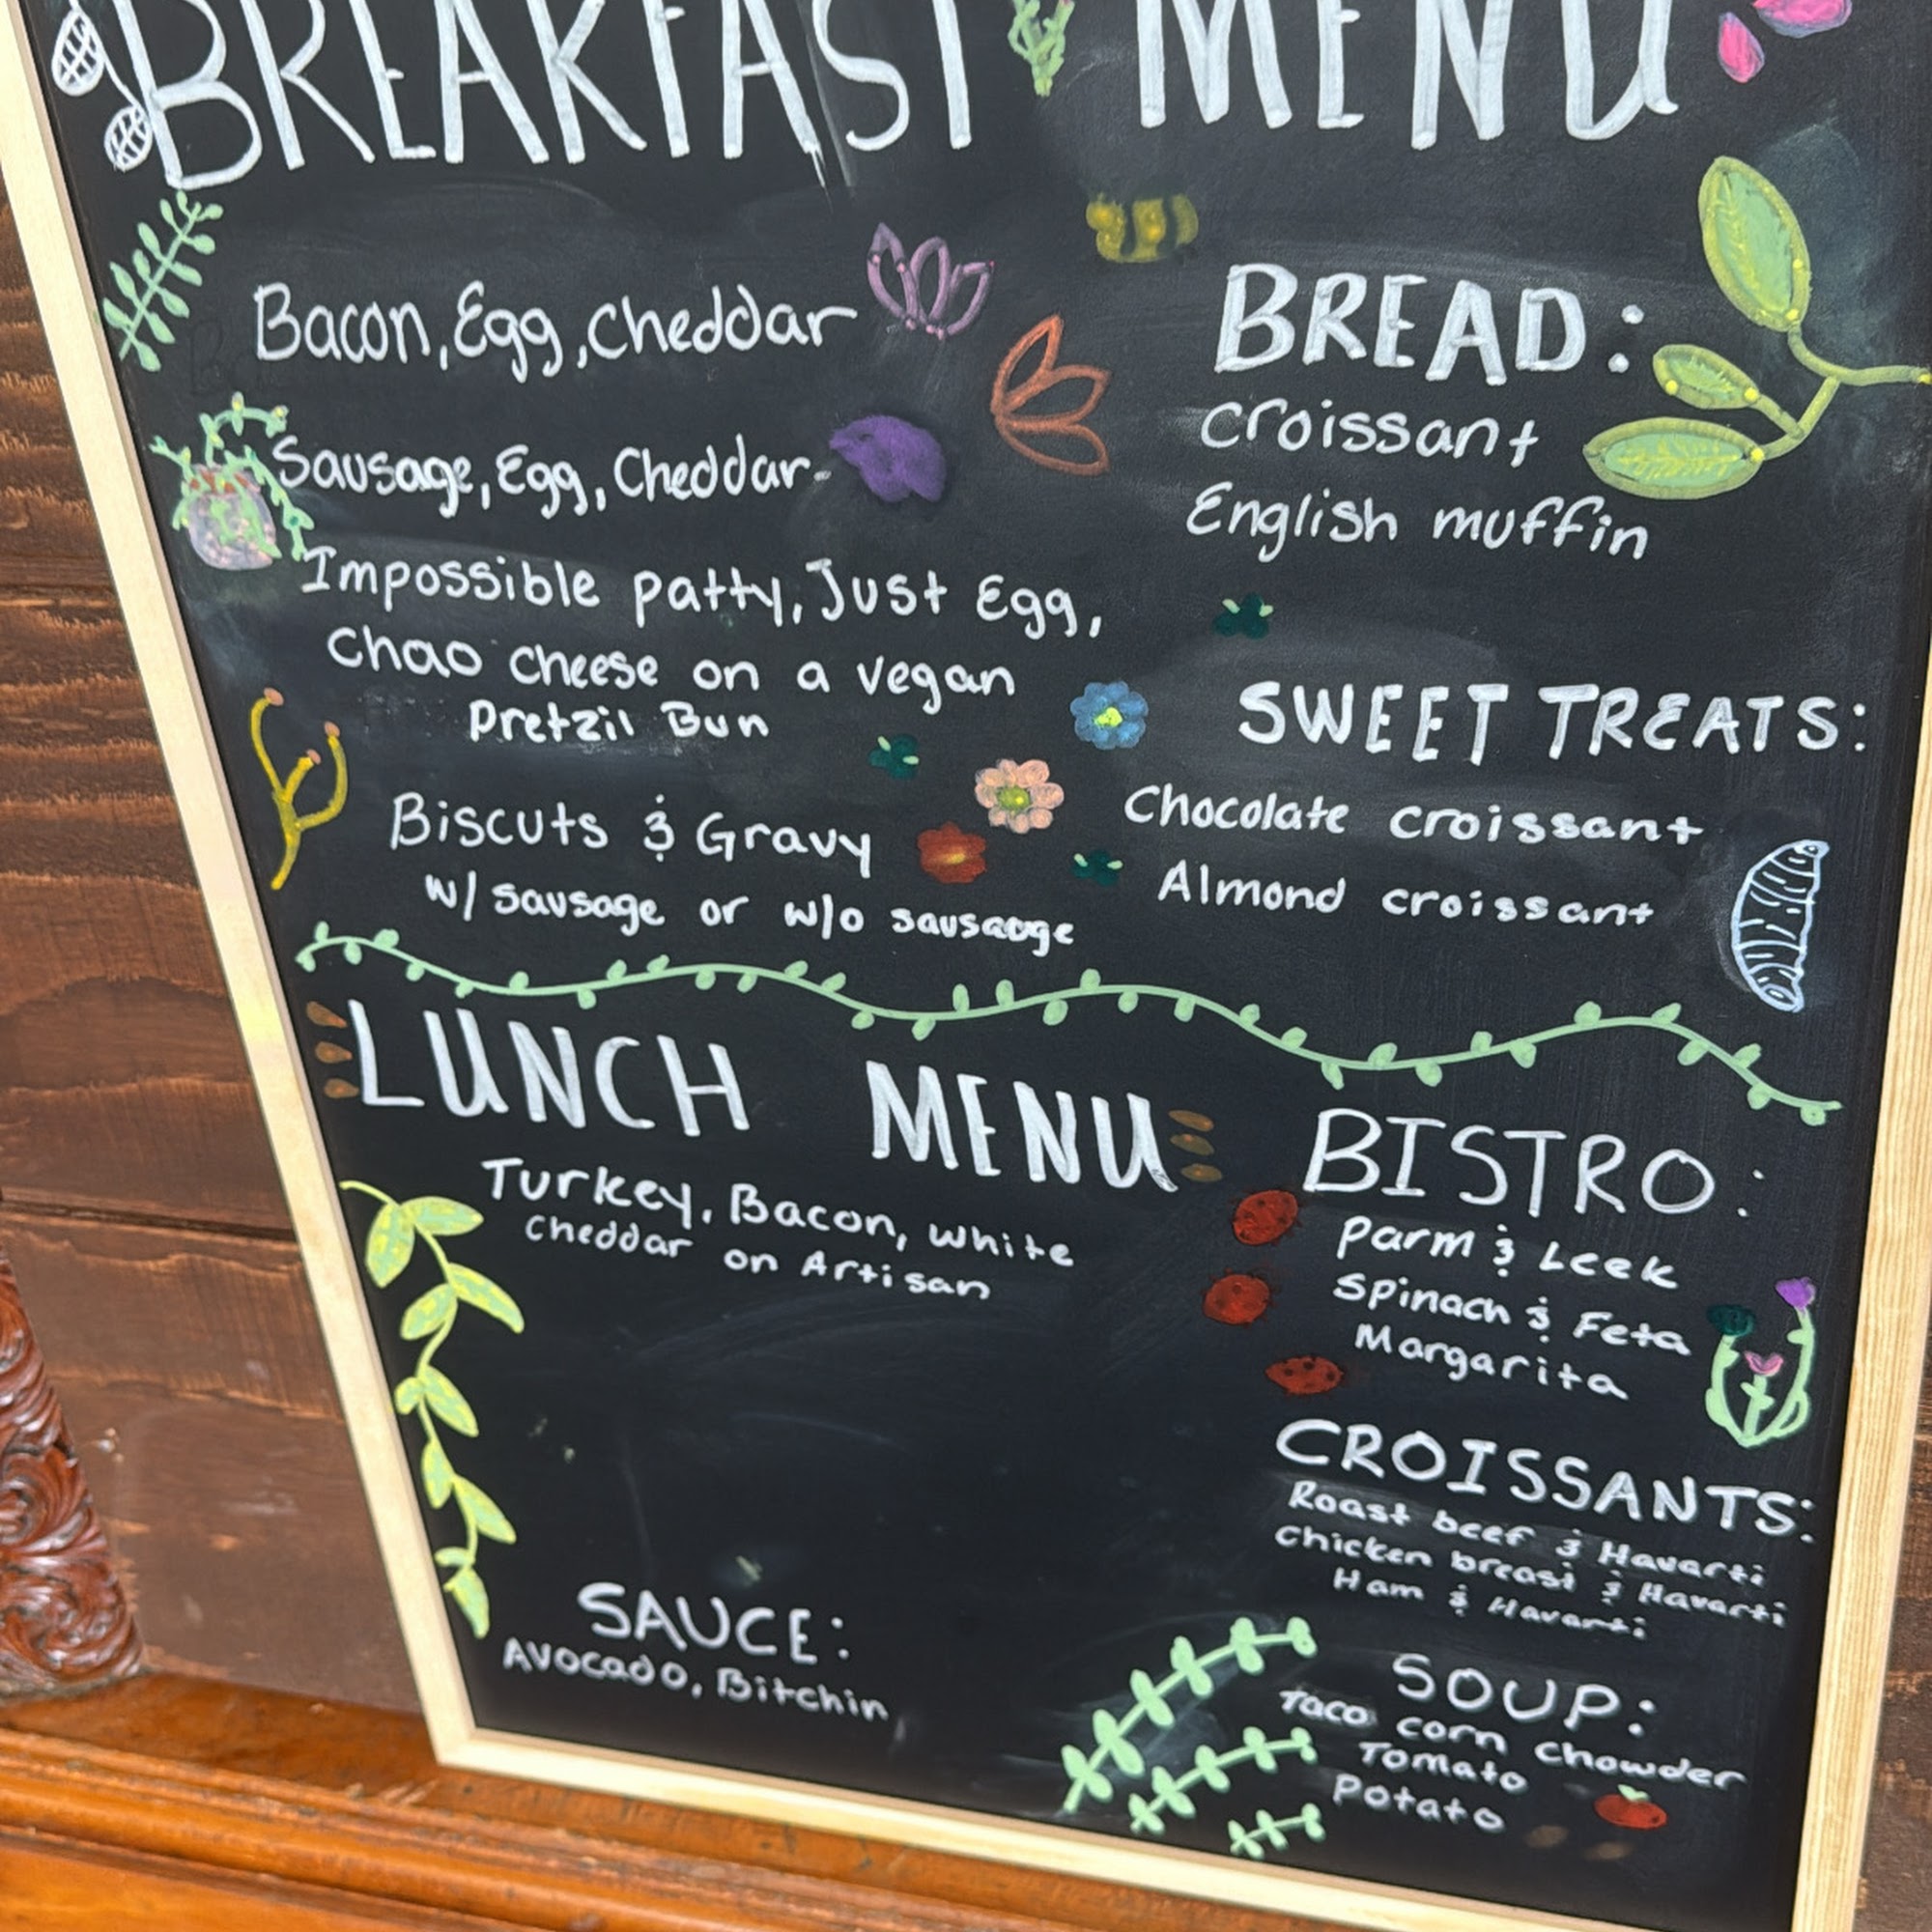 BREAKFAST MENU
Bacon, Egg, Cheddar
Sausage, Egg, Cheddar
Impossible patty, Just Egg,
Chao cheese on a vegan
Pretzil Bun
Biscuts & Gravy
w/ sausage or w/o sausaoge
BREAD:
croissant
English muffin
SWEET TREATS:
Chocolate croissant
Almond croissant
LUNCH MENU
Turkey, Bacon, White
Cheddar on Artisan
SAUCE:
Avocado, Bitchin
BISTRO:
Parm & Leek
Spinach & Feta
Margarita
CROISSANTS:
Roast beef & Havarti
Chicken breast & Havarti
Ham & Havarti
SOUP:
Taco corn chowder
Tomato
Potato